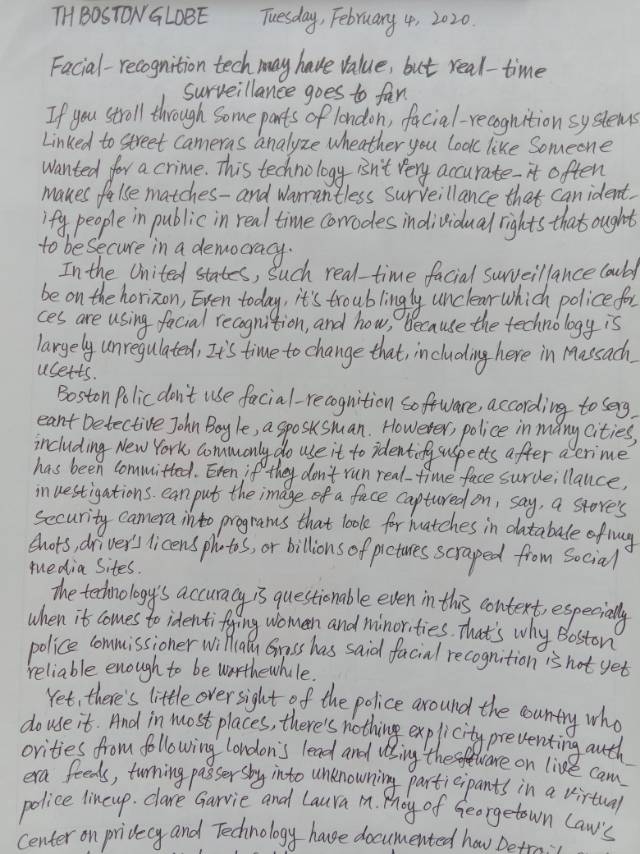 TH BOSTON GLOBE Tuesday, February 4, 2020.
Facial-recognition tech may have value, but real-time
surveillance goes to far
If you stroll through some parts of london, facial-recognition systems
Linked to street cameras analyze wheather you look like someone
wanted for a crime. This technology isn't very accurate-it often
makes false matches-and warrantless surveillance that can ident-
ify people in public in real time corrodes individual rights that ought
to be secure in a democracy.
In the United states, such real-time facial surveillance could
be on the horizon, Even today, it's troublingly unclear which police for
ces are using facial recognition, and how, because the technology is
largely unregulated, It's time to change that, including here in Massach-
usetts.
Boston Polic don't use facial-recognition software, according to serg
eant Detective John Boyle, a sposksman. However, police in many cities,
including New York, commonly do use it to identify suspects after a crime
has been committed. Even if they don't run real-time face surveillance,
investigations. can put the image of a face captured on, say, a store's
security camera into programs that look for matches in database of mug
shots, driver's licens photos, or billions of pictures scraped from social
media sites.
The technology's accuracy is questionable even in this context, especially
when it comes to identifying women and minorities. That's why Boston
police commissioner William Gross has said facial recognition is not yet
reliable enough to be worthewhile.
Yet, there's little oversight of the police around the country who
do use it. And in most places, there's nothing explicity preventing auth-
orities from following london's lead and using the software on live cam-
era feeds, turning passersby into unknowning participants in a virtual
police lineup. Clare Garvie and Laura M. Moy of Georgetown Law's
Center on privecy and Technology have documented how Detroit